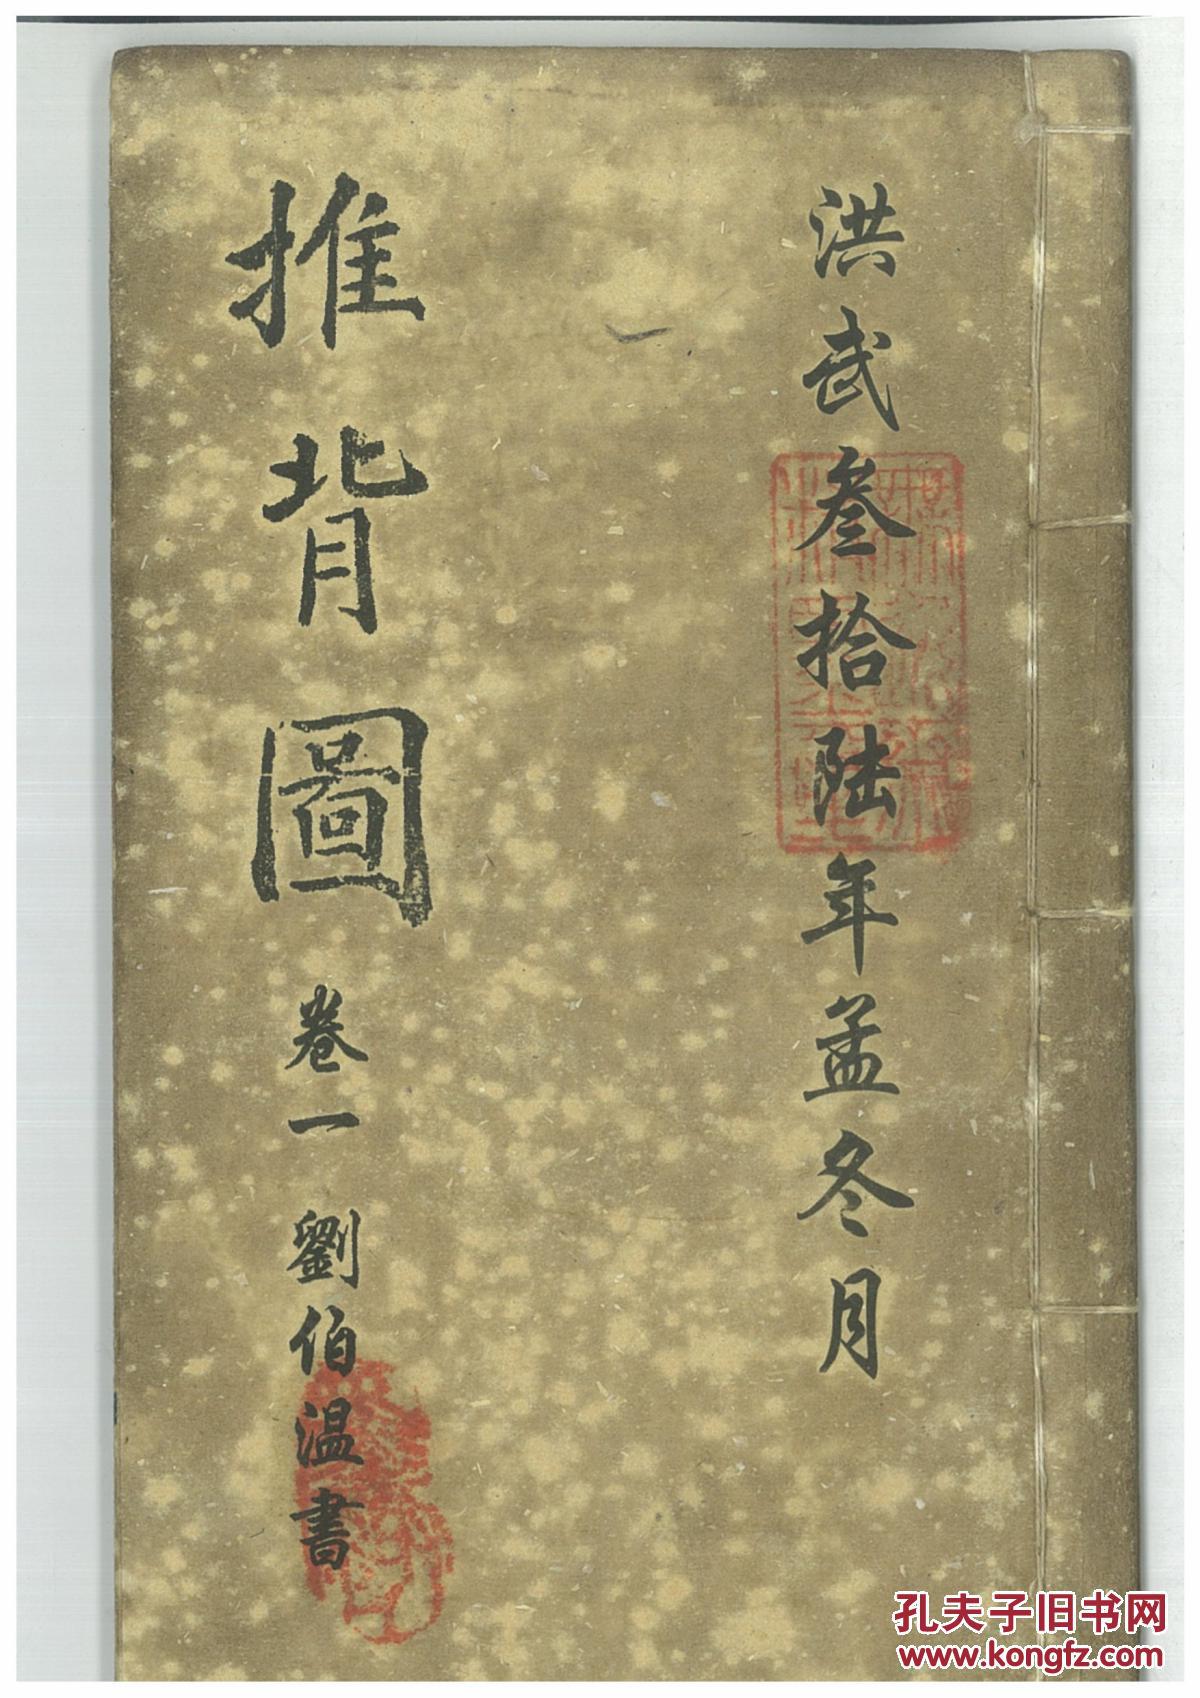 洪武叁拾陆年孟冬月
推背圖 卷一 劉伯温書
孔夫子旧书网
www.kongfz.com